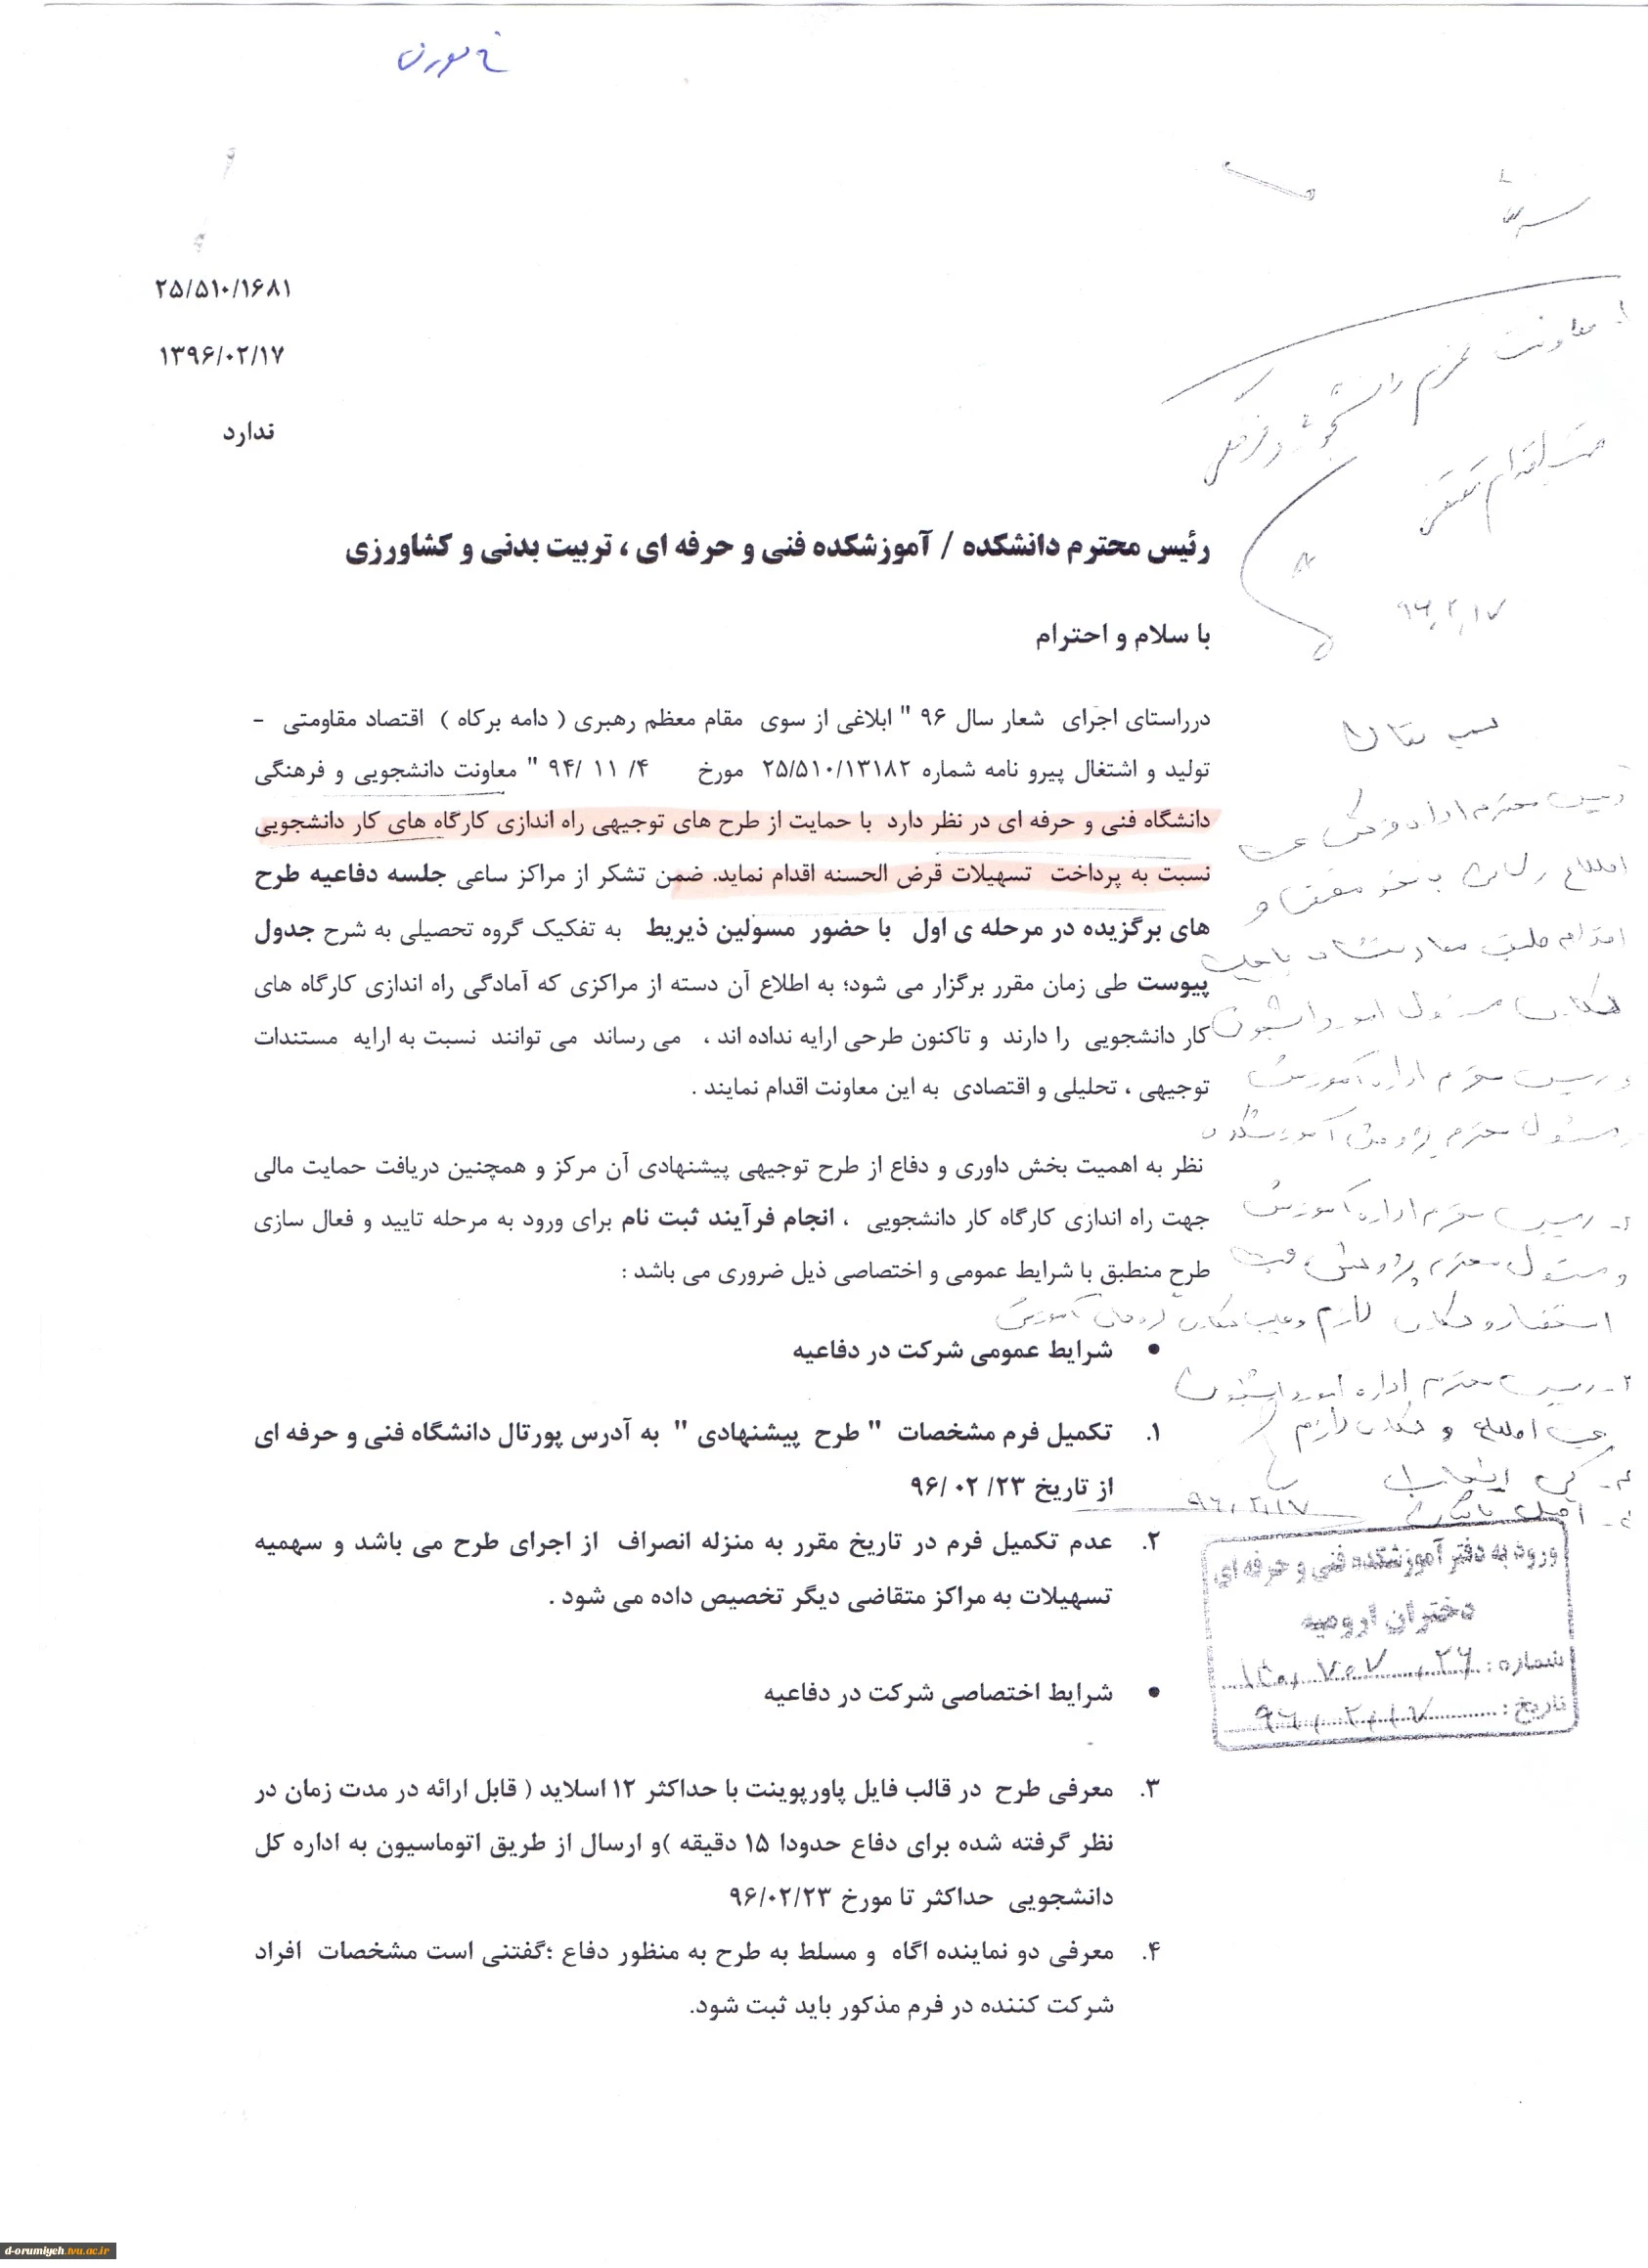 ۲۵/۵۱۰/۱۶۸۱
۱۳۹۶/۰۲/۱۷
ندارد
معاونت محترم دانشجویی و فرهنگی
جهت اقدام مقتضی
۹۶/۲/۱۷
رئیس محترم دانشکده / آموزشکده فنی و حرفه ای ، تربیت بدنی و کشاورزی
با سلام و احترام
درراستای اجرای شعار سال ۹۶ " ابلاغی از سوی مقام معظم رهبری ( دامه برکاه ) اقتصاد مقاومتی -
تولید و اشتغال پیرو نامه شماره ۲۵/۵۱۰/۱۳۱۸۲ مورخ ۴/ ۱۱ /۹۴ " معاونت دانشجویی و فرهنگی
دانشگاه فنی و حرفه ای در نظر دارد با حمایت از طرح های توجیهی راه اندازی کارگاه های کار دانشجویی
نسبت به پرداخت تسهیلات قرض الحسنه اقدام نماید. ضمن تشکر از مراکز ساعی جلسه دفاعیه طرح
های برگزیده در مرحله ی اول با حضور مسولین ذیربط به تفکیک گروه تحصیلی به شرح جدول
پیوست طی زمان مقرر برگزار می شود؛ به اطلاع آن دسته از مراکزی که آمادگی راه اندازی کارگاه های
کار دانشجویی را دارند و تاکنون طرحی ارایه نداده اند ، می رساند می توانند نسبت به ارایه مستندات
توجیهی ، تحلیلی و اقتصادی به این معاونت اقدام نمایند .
نظر به اهمیت بخش داوری و دفاع از طرح توجیهی پیشنهادی آن مرکز و همچنین دریافت حمایت مالی
جهت راه اندازی کارگاه کار دانشجویی ، انجام فرآیند ثبت نام برای ورود به مرحله تایید و فعال سازی
طرح منطبق با شرایط عمومی و اختصاصی ذیل ضروری می باشد :
• شرایط عمومی شرکت در دفاعیه
۱. تکمیل فرم مشخصات " طرح پیشنهادی " به آدرس پورتال دانشگاه فنی و حرفه ای
از تاریخ ۲۳/ ۰۲ /۹۶
۲. عدم تکمیل فرم در تاریخ مقرر به منزله انصراف از اجرای طرح می باشد و سهمیه
تسهیلات به مراکز متقاضی دیگر تخصیص داده می شود .
• شرایط اختصاصی شرکت در دفاعیه
۳. معرفی طرح در قالب فایل پاورپوینت با حداکثر ۱۲ اسلاید ( قابل ارائه در مدت زمان در
نظر گرفته شده برای دفاع حدودا ۱۵ دقیقه )و ارسال از طریق اتوماسیون به اداره کل
دانشجویی حداکثر تا مورخ ۹۶/۰۲/۲۳
۴. معرفی دو نماینده اگاه و مسلط به طرح به منظور دفاع ؛گفتنی است مشخصات افراد
شرکت کننده در فرم مذکور باید ثبت شود.
رئیس محترم اداره آموزش
و مسئول محترم پژوهش
۹۶/۲/۱۷
ورود به دفتر آموزشکده فنی و حرفه ای
دختران ارومیه
شماره :
تاریخ : ۹۶/۲/۱۷
d-orumiyeh.tvu.ac.ir